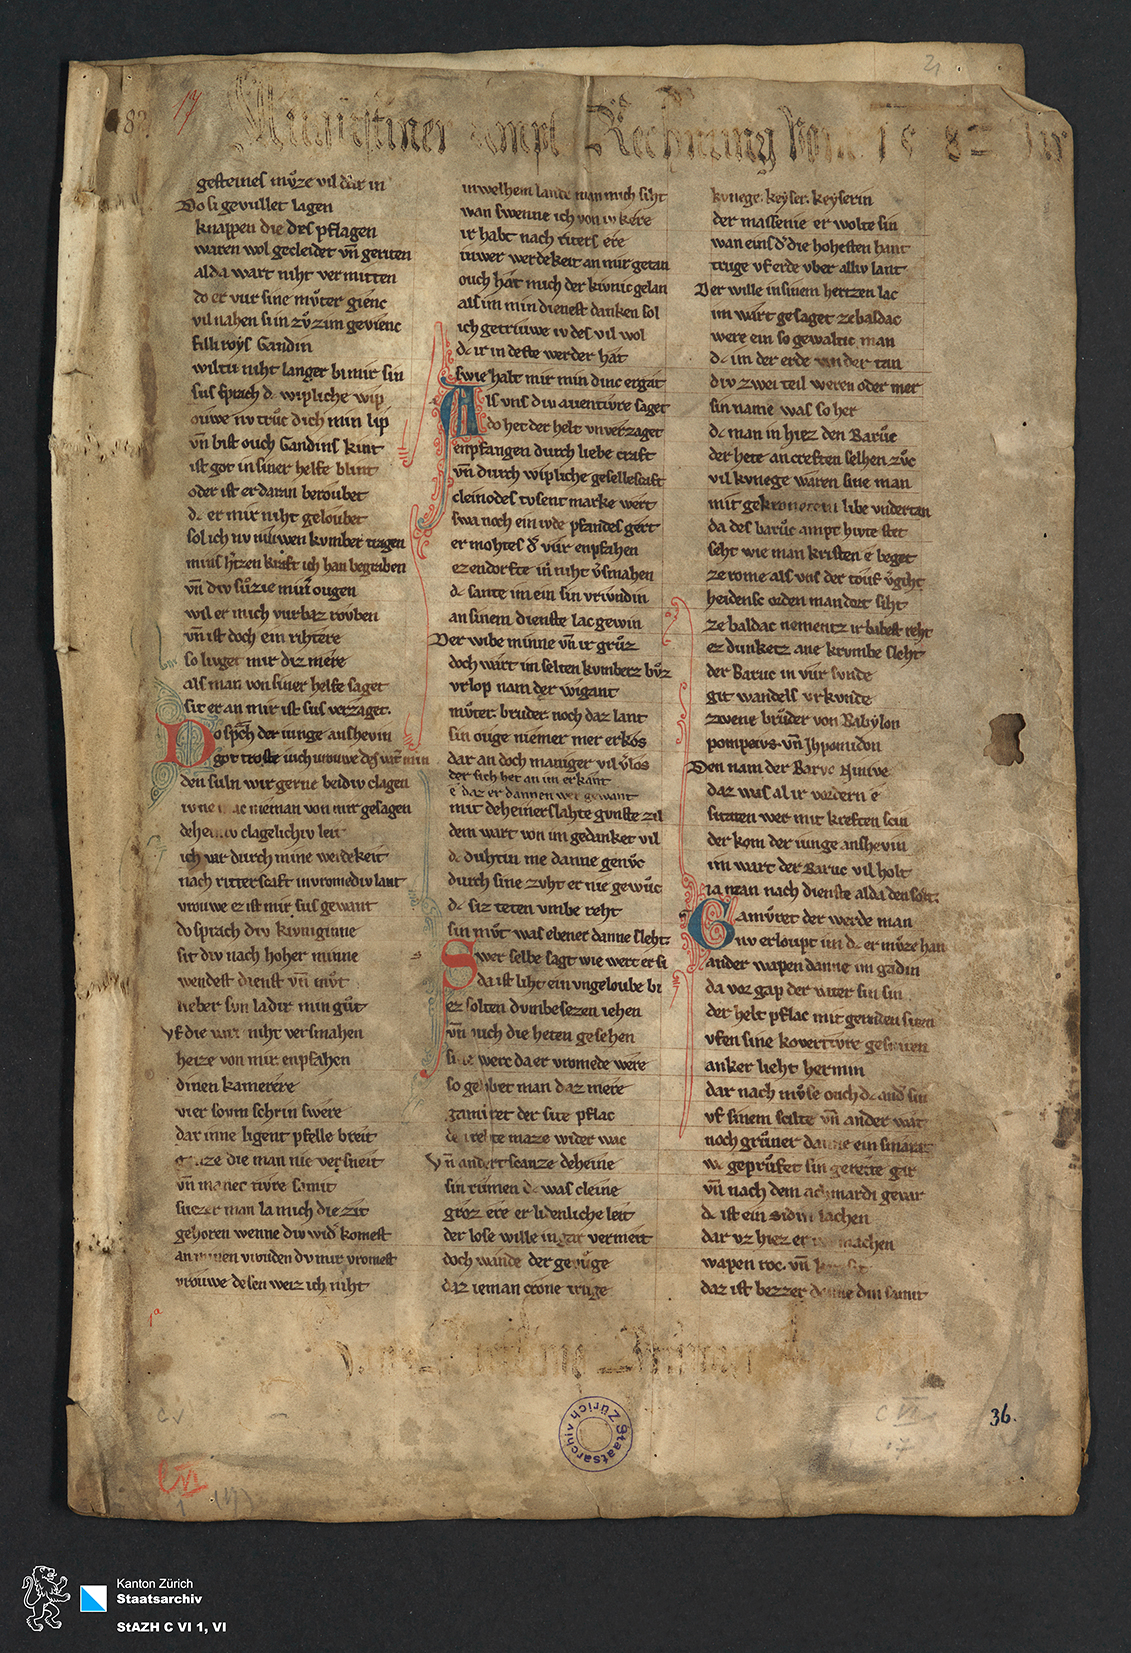 17
21
Augustiner ampt Rechnung vom 1 5 8 2 Jar
gesteines mv̊ze vil dar in
Do si gevullet lagen
knappen die des pflagen
waren wol gecleidet vn̄ geriten
alda wart niht vermitten
do er vur sine mv̊ter gienc
vil nahen si in zv̊ zim gevienc
filli roys Gandin
wiltu niht langer bi mir sin
sus sprach dc wipliche wip
ouwe nv truc dich min lip
vn̄ bist ouch Gandins kint
ist got in siner helfe blint
oder ist er daran betoubet
dc er mir niht geloubet
sol ich nv niuwen kvmber tragen
mins h'tzen kraft ich han begraben
vn̄ div sv̊ze min' ougen
wil er mich vurbaz rouben
vn̄ ist doch ein rihtere
so liuget mir diz mere
als man von siner helfe saget
sit er an mir ist sus verzaget.
Do sp̄ch der iunge anshevin
got troste iuch vrouwe des vat' min
den suln wir gerne beidiv clagen
iv ne mac nieman von mir gesagen
deheiniv clagelichiv leit
ich var durch mine werdekeit
nach ritterscaft in vromediv lant
vrouwe ez ist mir sus gewant
do sprach div kvniginne
sit div nach hoher minne
wendest dienst vn̄ mv̊t
lieber svn la dir min gůt
vf die vart niht versmahen
heize von mir enpfahen
dinen kamerere
vier soum schrin swere
dar inne ligent pfelle breit
ganze die man nie versneit
vn̄ manec tivre samit
suezer man la mich die zit
gehoren wenne div wid' komest
an minen vrouden dv mir vromest
vrouwe desen weiz ich niht
in welhem lande man mich siht
wan swenne ich von iv kere
ir habt nach riters ere
iuwer werdekeit an mir getan
ouch hat mich der kivnic gelan
als im min dienest danken sol
ich getriuwe iv des vil wol
dc ir in deste werder hat
swie halt mir min dinc ergat
Als vns div auentivre saget
do het der helt vnverzaget
enpfangen durch liebe craft
vn̄ durch wipliche gesellescaft
cleinodes tvsent marke wert
swa noch ein ivde pfandes gert
er mohtes d' vur enpfahen
ez endorfte in niht v'smahen
dc sante im ein sin vriundin
an sinem dienste lac gewin
Der wibe minne vn̄ ir grv̊z
doch wart im selten kvmberz bv̊z
vrlop nam der wigant
mv̊ter. bruder. noch daz lant
sin ouge niemer mer erkos
dar an doch maniger vil v'los
der sich het an im erkant
e daz er dannen wer gewant
mit deheiner slahte gunste zil
dem wart von im gedanket vil
dc duhtin me danne genv̊c
durch sine zvht er nie gewůc
dc siz teten vmbe reht
sin mv̊t was ebener danne sleht.
Swer selbe sagt wie wert er si
da ist liht ein vngeloube bi
ez solten dvmbesezen iehen
vn̄ ouch die heten gesehen
sine werc da er vromede were
so geloubet man daz mere
gamuret der site pflac
der rehte maze wider wac
Vn̄ andert scanze deheine
sin rumen dc was cleine
groz ere er lidenliche leit
der lose wille in gar vermeit
doch wande der gevůge
daz ieman crone truge
kvnege. keyser. keyserin
der massenie er wolte sin
wan eins d' die hohesten hant
truge vf erde vber alliv lant
Der wille in sinem hertzen lac
im wart gesaget ze baldac
were ein so gewaltic man
dc im der erde vnder tan
div zwei teil weren oder mer
sin name was so her
dc man in hiez den Barůc
der hete an creften selhen zůc
vil kvnege waren sine man
mit gekronetem libe vndertan
da des barůc ampt hivte stet
seht wie man kristen e beget
ze rome als vns der touf v'giht
heidensc orden man dort siht
ze baldac nementz ir babest reht
ez dunketz ane krvmbe sleht
der Baruc in vur svnde
git wandels vrkvnde
zwene brůder von Babylon
pompeivs. vn̄ Jhpomidon
Den nam der Baruc Niniue
daz was al ir vordern e
si taten wer mit kreften scin
der kom der iunge anshevin
im wart der Baruc vil holt
ia nam nach dienste alda den solt.
Gamůret der werde man
nv erloupt im dc er mv̊ze han
ander wapen danne im gadin
da vor gap der vater sin sin
der helt pflac mit gernden siten
vfen sine kovertivre gesniten
anker lieht hermin
dar nach mv̊se ouch dc and' sin
vf sinem scilte vn̄ ander wat
noch grůner danne ein smarat
wc geprůfet sin gereite gar
vn̄ nach dem achmardi gevar
dc ist ein sidin lachen
dar vz hiez er im machen
wapen roc. vn̄ kursit
daz ist bezzer danne din samit
1a
36.
C VI
Staatsarchiv Zürich
Kanton Zürich
Staatsarchiv
StAZH C VI 1, VI